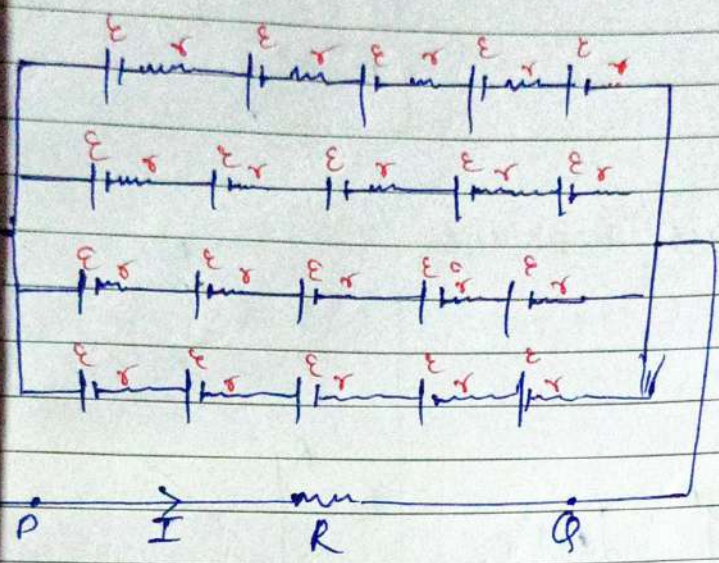 ε r ε r ε r ε r ε r
ε r ε r ε r ε r ε r
ε r ε r ε r ε r ε r
ε r ε r ε r ε r ε r
P I R Q